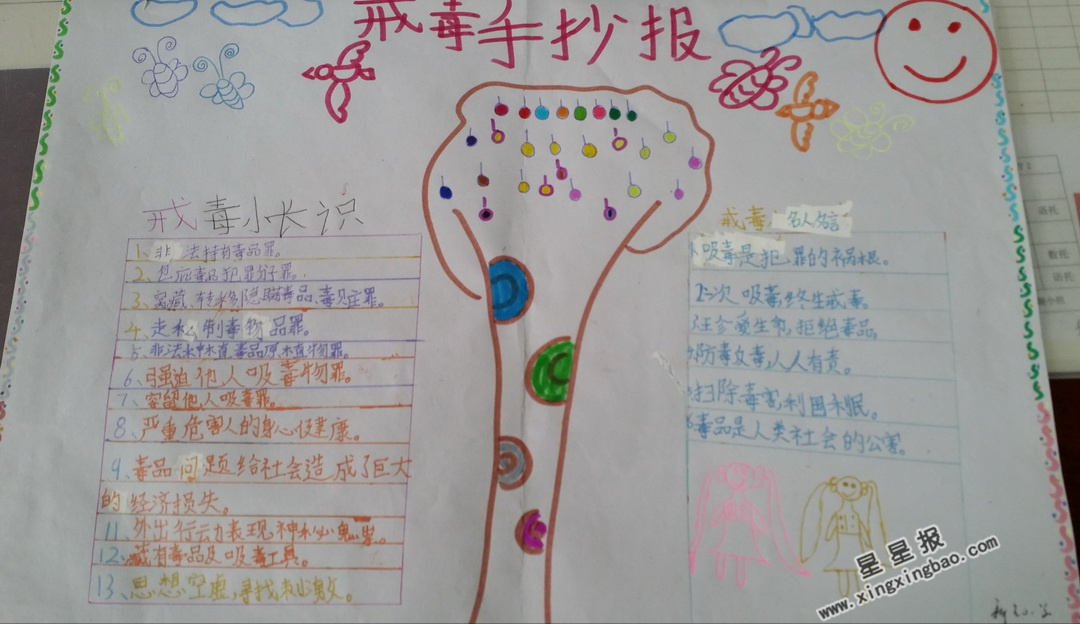 戒毒手抄报
戒毒小长识
1、非法持有毒品罪。
2、包庇毒品犯罪分子罪。
3、窝藏、转移、隐瞒毒品、毒贝庄罪。
4、走私制毒物品罪。
5、非法种植毒品原植物罪。
6、强迫他人吸毒物罪。
7、容留他人吸毒罪。
8、严重危害人的身心健康。
9、毒品问题给社会造成了巨大
的经济损失。
11、外出行动表现神秘鬼祟。
12、藏有毒品及吸毒工具。
13、思想空虚,寻找刺激。
戒毒名人名言
吸毒是犯罪的祸根。
2一次吸毒终生戒毒。
珍爱生命,拒绝毒品。
防毒反毒人人有责。
扫除毒害利国利民。
6毒品是人类社会的公害。
星星报
www.xingxingbao.com